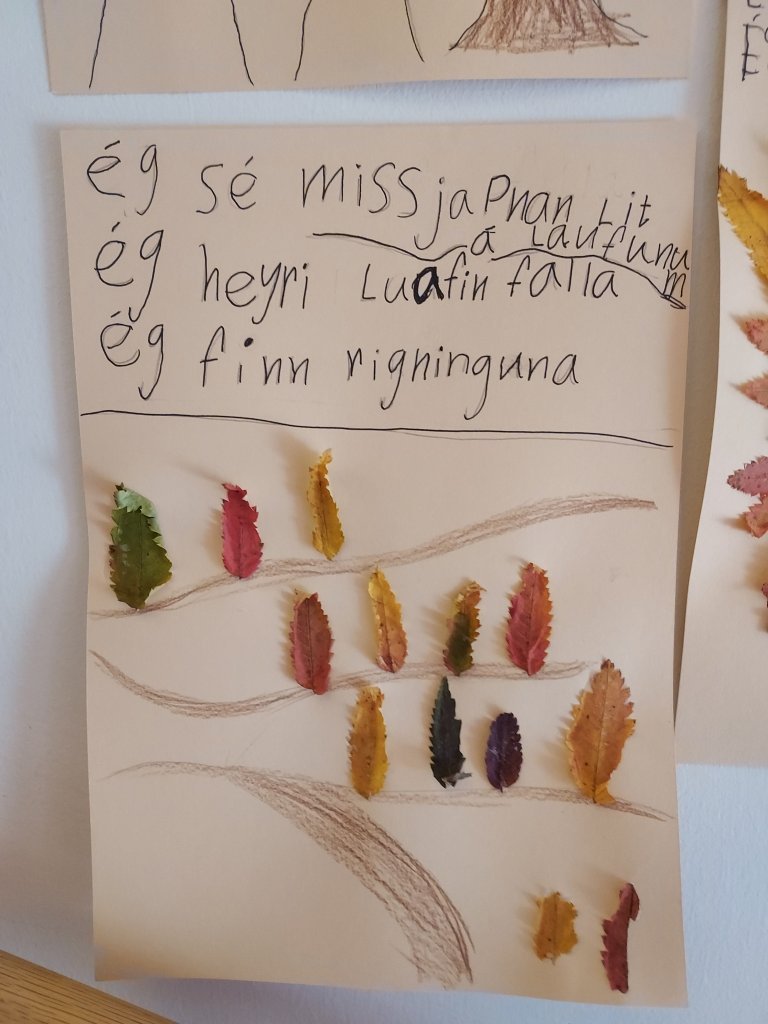 ég sé missjapnan lit
á laufunum
ég heyri luafin falla
ég finn rigninguna